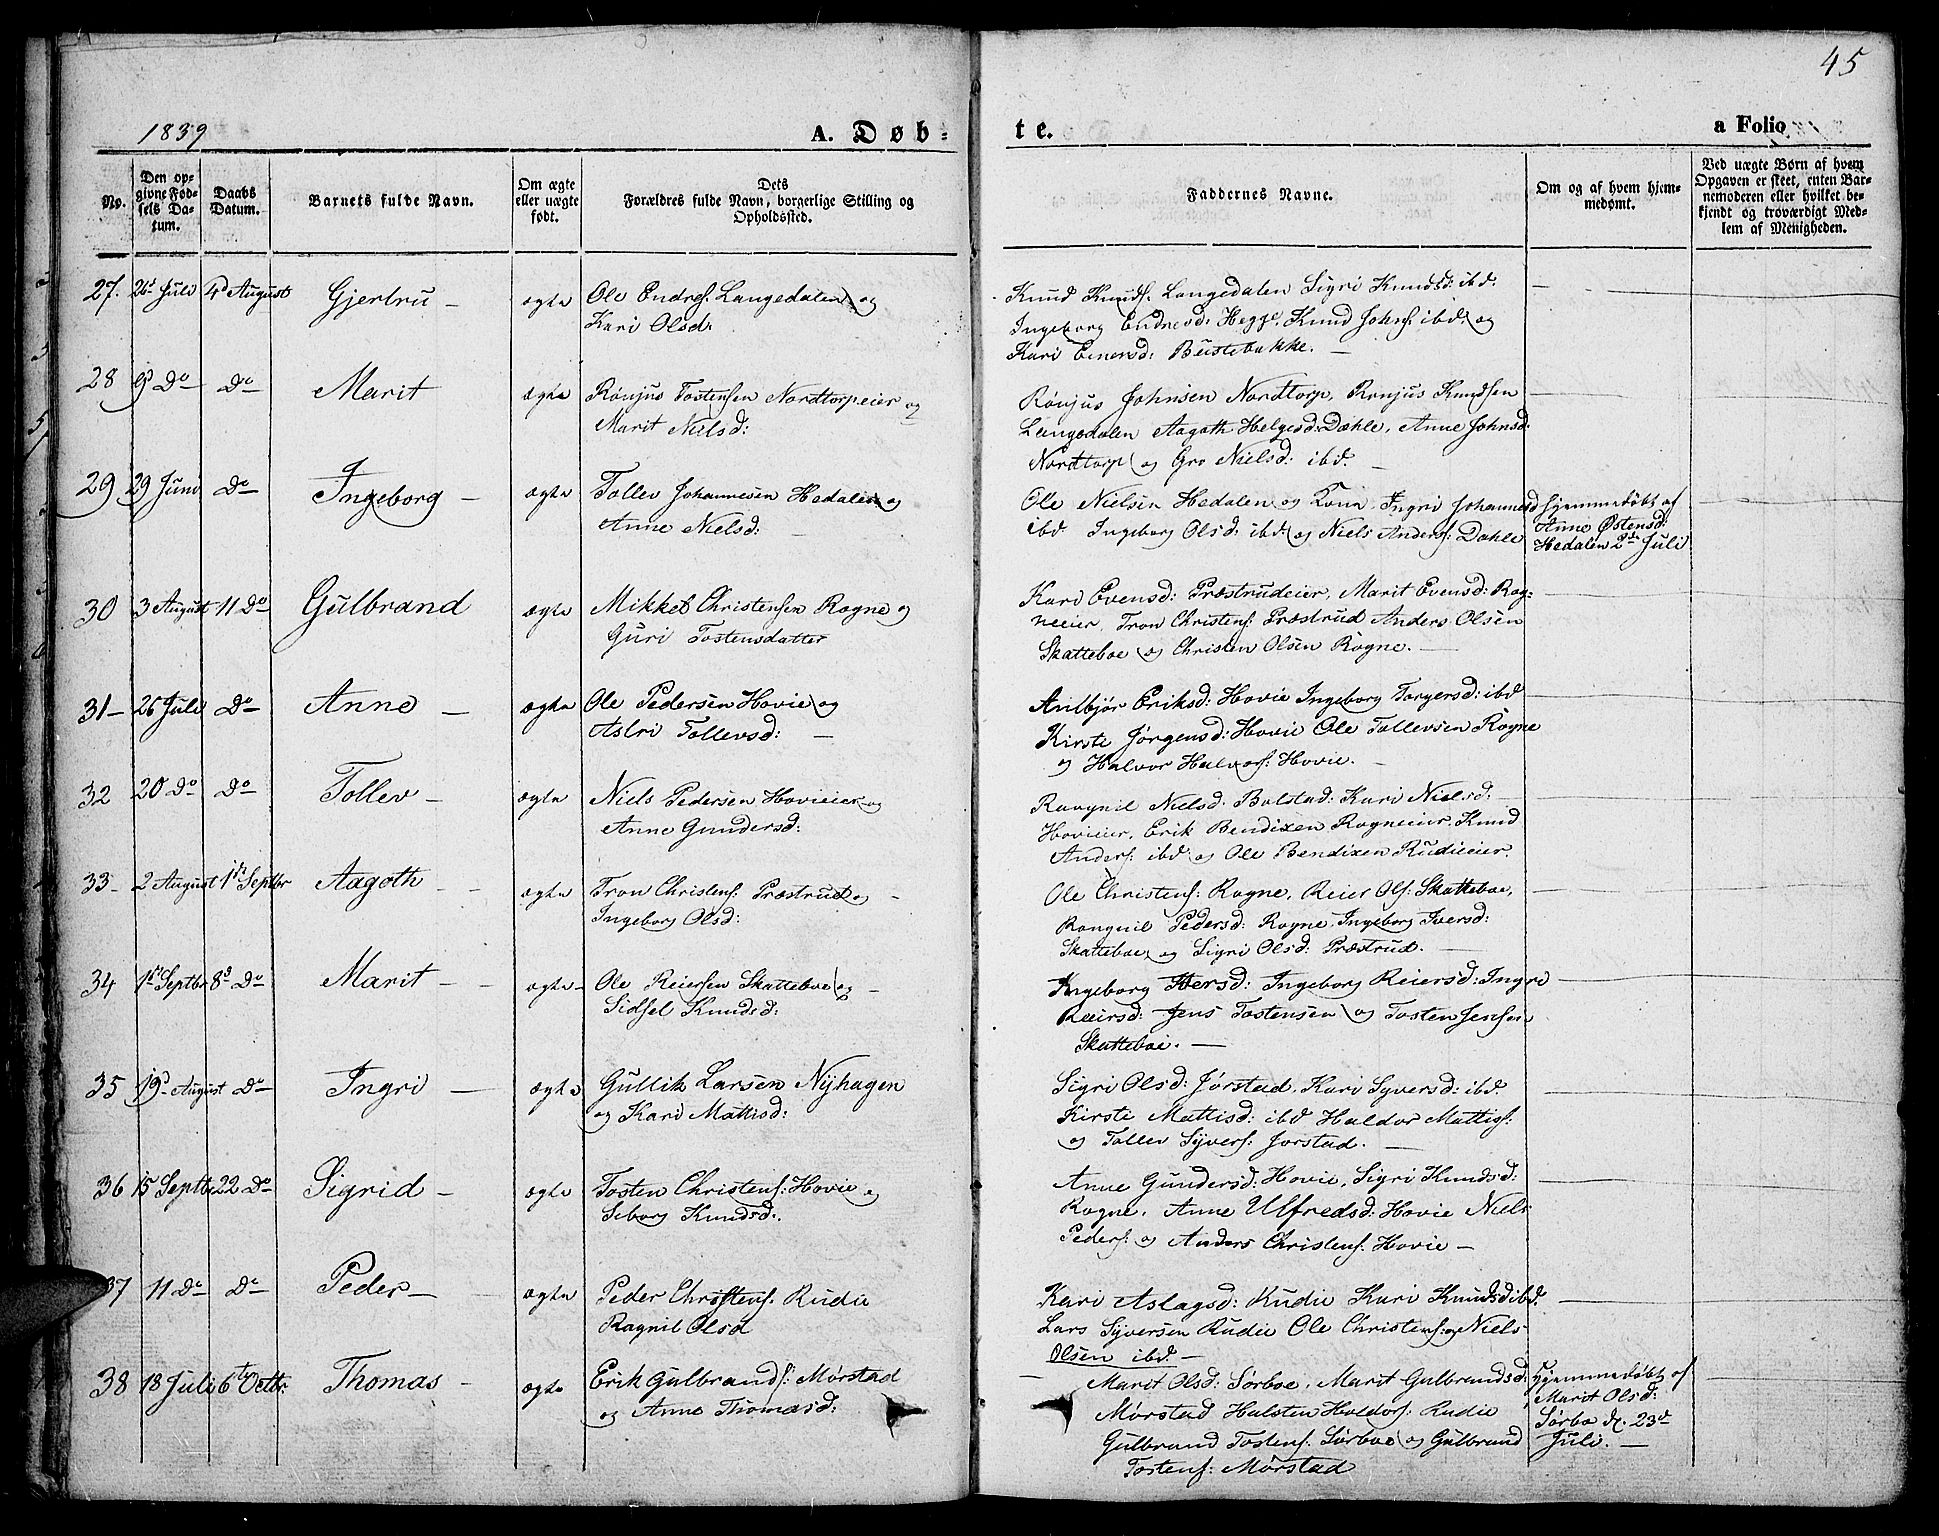 45
1839
A. Døb-
te.
a Folio
No.
Den op-
givne Fød-
sels Da-
tum.
Daabs
Datum.
Barnets fulde Navn.
Om ægte
eller uægte
født.
Dets
Forældres fulde Navn, borgerlige Stilling og
Opholdssted.
Faddernes Navne.
Om og af hvem hjem-
medømt.
Ved uægte Børn af hvem
Opgaven er skeet, enten Bar-
nemoderen eller hvilket be-
kjendt og troværdigt Med-
lem af Menigheden.
27. Juli 4d August Gjertru - ægte Ole Endres. Langedalen og
Kari Olsd:
Knud Knuds. Langedalen Sigri Knudsd: ibd.
Ingeborg Endresd: Hegge, Knud Johns. ibd. og
Kari Einersd: Beistebakke. -
28 9d Do Do Marit ægte Rönjus Tostensen Nordtorpeier og
Marit Nielsd:
Rönjus Johnsen Nordtorp, Ronjus Knudsen
Langedalen Aagoth Helgesd: Dæhle, Anne Johnsd.
Nordtorp og Gro Nielsd: ibd. -
29 29 Juni Do Ingeborg - ægte Tollev Johannesen Hedalen og
Anne Nielsd: -
Ole Nielsen Hedalen og Kona Ingri Johannesd
ibd Ingeborg Olsd: ibd: og Niels Anders: Dahle
Hjemmedøbt af
Anne Østensd:
Hedalen 2de Juli
30 3 August 11 Do Gulbrand ægte Mikkel Christensen Rogne og
Guri Tostensdatter
Kari Evensd: Præstrudeier, Marit Evensd: Rog-
neeier, Tron Christens: Præstrud Anders Olsen
Skatteboe og Christen Olsen Rogne. -
31 - 26 Juli Do Anne - ægte Ole Pedersen Hovie og
Astri Tollevsd: -
Anlbjör Eriksd: Hovie Ingeborg Torgersd: ibd
Kirsti Jörgensd: Hovie Ole Tollevsen Rogne
og Halvor Halvors: Hovie. -
32 20 Do Do Tollev - ægte Niels Pedersen Hovieeier og
Anne Gundersd:
Ravgnil Nielsd: Bolstad: Kari Nielsd: -
Hovieeier, Erik Bendixen Rogneeier, Knud
Anders: ibd og Ole Bendixen Rudieeier.
33 - 2 August 1ste Septbr Aagoth - ægte Tron Christens: Præstrud og -
Ingeborg Olsd:
Ole Christens: Rogne, Reier Ols: Skatteboe,
Rangnil Pedersd: Rogne, Ingeborg Iversd:
Skatteboe og Sigri Olsd: Præstrud. -
34 1ste Septbr 8d Do Marit - ægte - Ole Reiersen Skatteboe og -
Sidsel Knudsd:
Ingeborg Iversd: Ingeborg Reiersd: Ingri
Reiersd: Jens Tostensen og Tosten Jensen
Skatteboe. -
35 19d August Do Ingri - ægte Gullik Larsen Nyhagen
og Kari Mattisd:
Sigri Olsd: Jørstad, Kari Syversd: ibd.
Kirsti Mattisd: ibd Haldor Mattis:
og Tollev Syvers: Jorstad. -
36 15 Septbr 22 Do Sigrid - ægte Tosten Christens: Hovie og
Seborg Knudsd:.
Anne Gundersd: Hovie, Sigri Knudsd:
Rogne, Anne Ulfredsd: Hovie Niels
Peders: og Anders Christens: Hovie -
37 11 Do Do Peder - ægte Peder Christens. Rudie
Ragnil Olsd
Kari Aslagsd: Rudie Kari Knudsd ibd.
Lars Syversen Rudie Ole Christens: og Niels
Olsen ibd. -
38 18 Juli 6te Octbr: Thomas - ægte Erik Gulbrands: Mørstad
og Anne Thomasd:
Marit Olsd: Sørboe, Marit Gulbrandsd:
Mørstad Halsten Haldors: Rudie
Gulbrand Tostens: Sørboe og Gulbrand
Tostens: Mørstad
Hjemmedøbt af
Marit Olsd:
Sørboe d. 23d
Juli. -